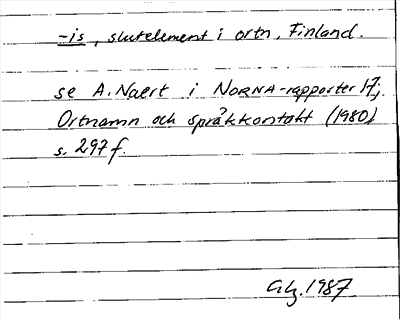 -is, slutelement i ortn, Finland.
se A. Naert i NORNA-rapporter 17;
Ortnamn och språkkontakt (1980)
s. 297 f
1987